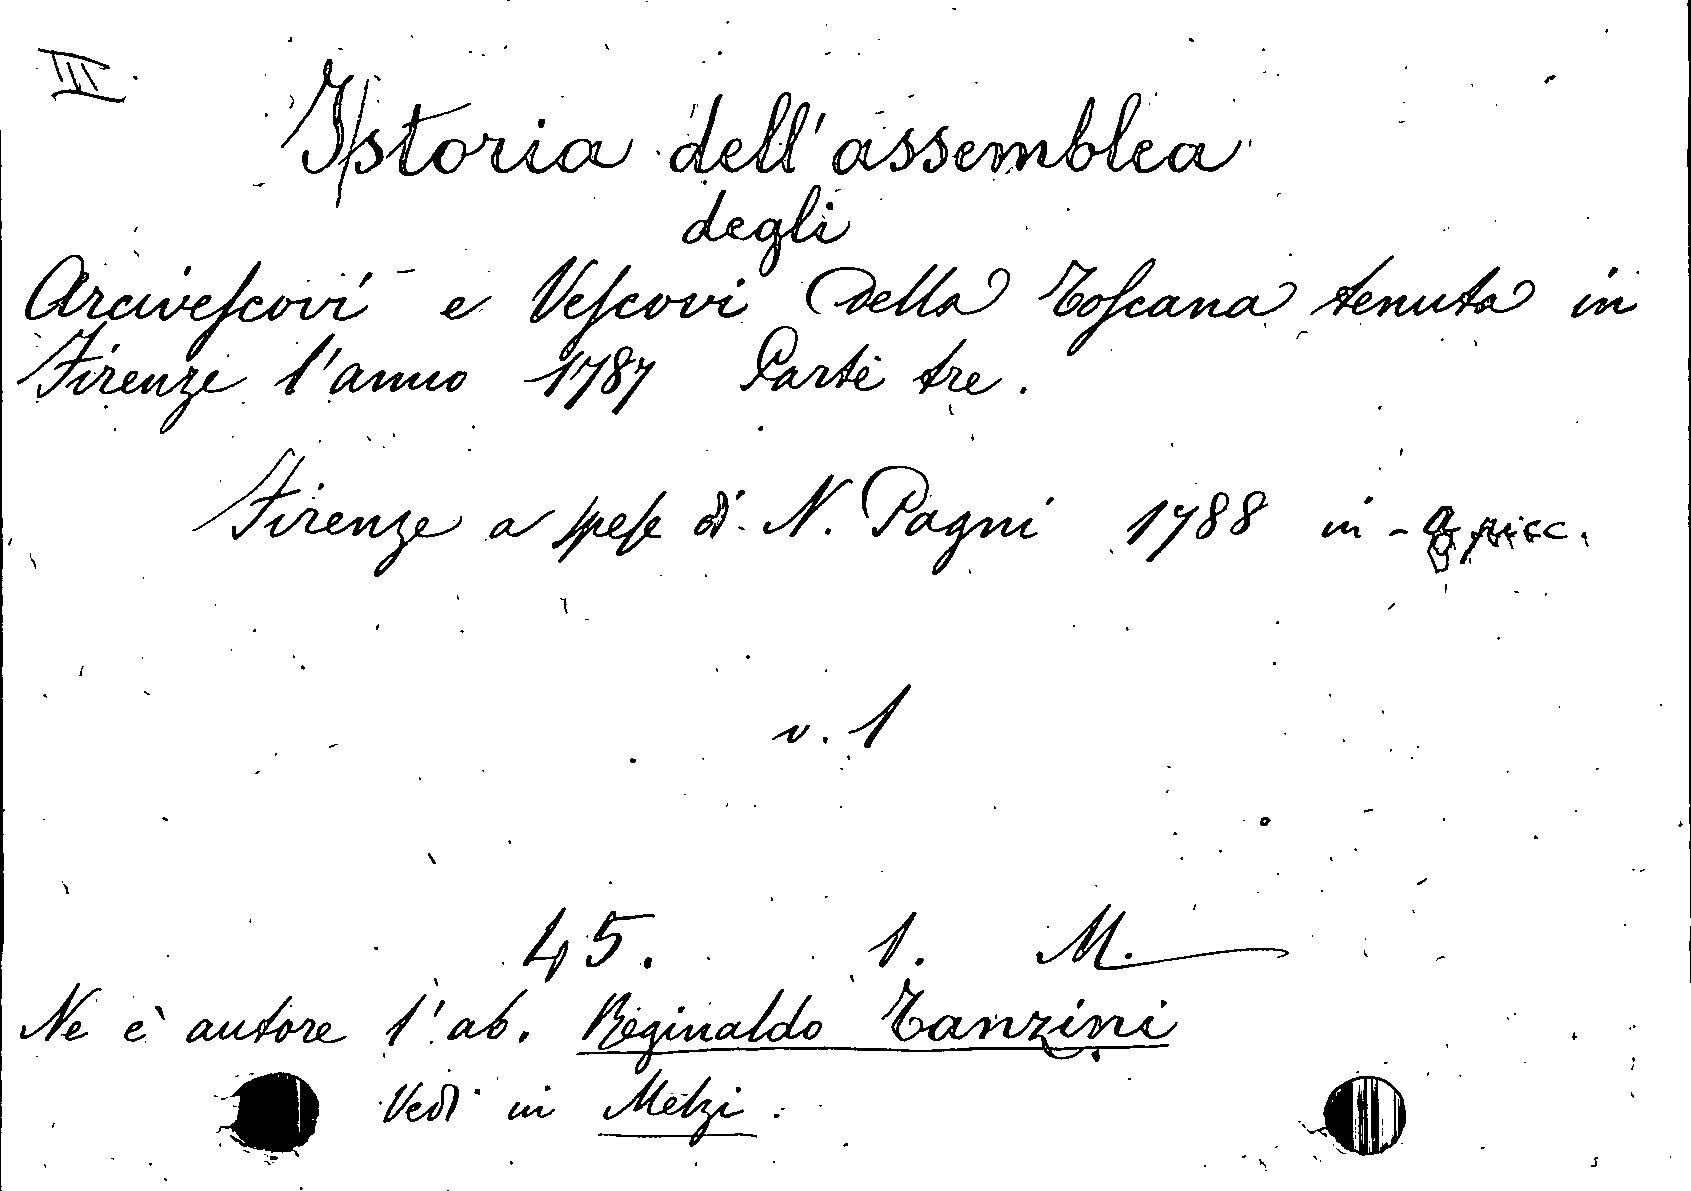 III
Istoria dell'assemblea
degli
Arcivescovi e Vescovi della Toscana tenuta in
Firenze l'anno 1787 Parti tre.
Firenze a spese di N. Pagni 1788 in-
v. 1
45. 1. M.
Ne è autore l'ab. Reginaldo Tanzini
Vedi in Melzi.